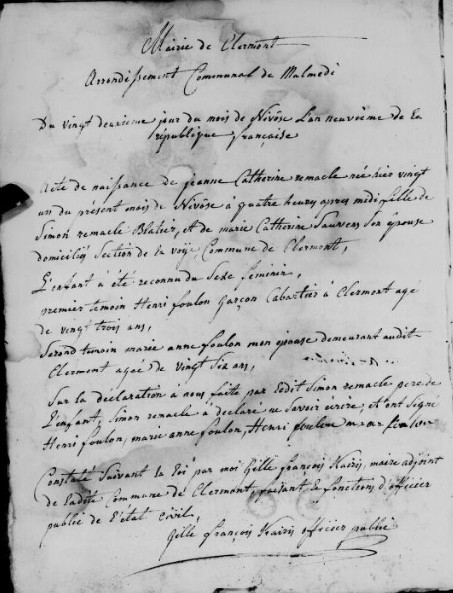 Mairie de Clermont
Arrondissement Communal de Malmedi
Du vingt deuxieme jour du mois de Nivôse L'an neuvième de la
république française
Acte de naissance de jeanne Catherine remacle née hier vingt
un du présent mois de Nivôse à quatre heures apres midi fille de
Simon remacle et de marie Catherine Sauvens son épouse
domiciliés Section de la Commune de Clermont,
L'enfant à été reconnu du Sexe feminin,
premier temoin Henri foulon Garçon Cabartier à Clermont age
de vingt trois ans,
Second temoin marie anne foulon mon épouse demeurant audit
Clermont agée de vingt Six ans,
Sur la déclaration à nous faite par ledit Simon remacle pere de
l'enfant, Simon remacle à déclaré ne Savoir écrire, et ont Signé
Henri foulon, marie anne foulon, Henri foulon m a foulon
Constaté Suivant la Loi par moi Gille françois maire adjoint
de ladite Commune de Clermont, faisant les fonctions d'officier
public de l'état Civil,
Gille françois officier public